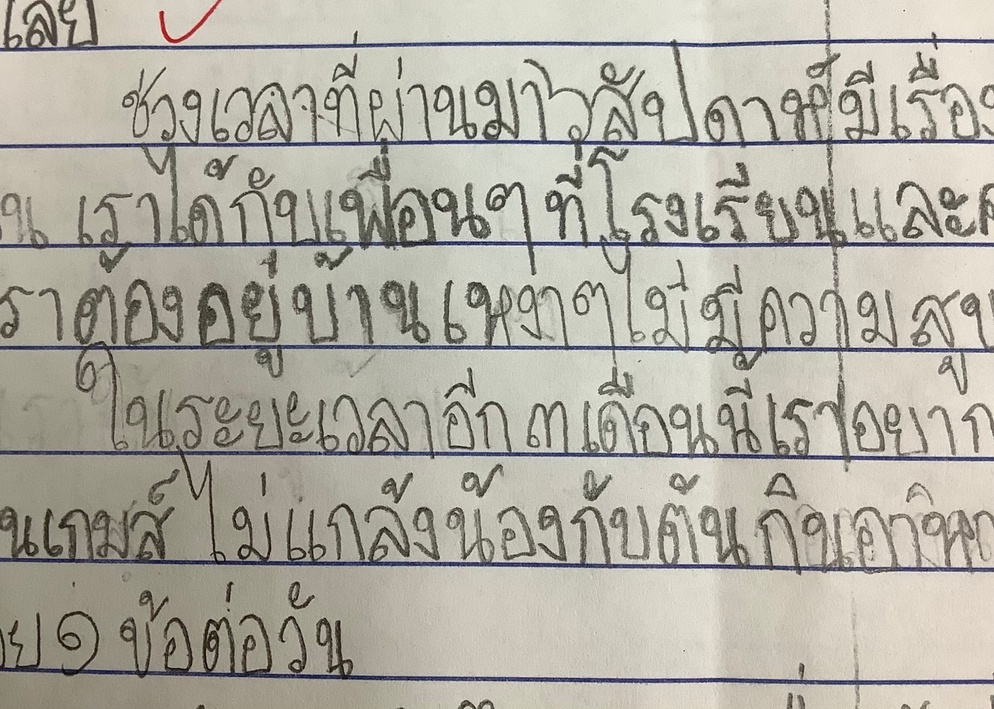 เลย
ช่วงเวลาที่ผ่านมา ๖ สัปดาห์มีเรื่อง
เราได้กับเพื่อนๆ ที่โรงเรียนและ
ราต้องอยู่บ้านเหงาๆ ไม่มีความสุข
ในระยะเวลาอีก ๓ เดือนนี้เราอยาก
นเกมส์ ไม่แกล้งน้องกับต้น กิน
๑ ข้อต่อวัน